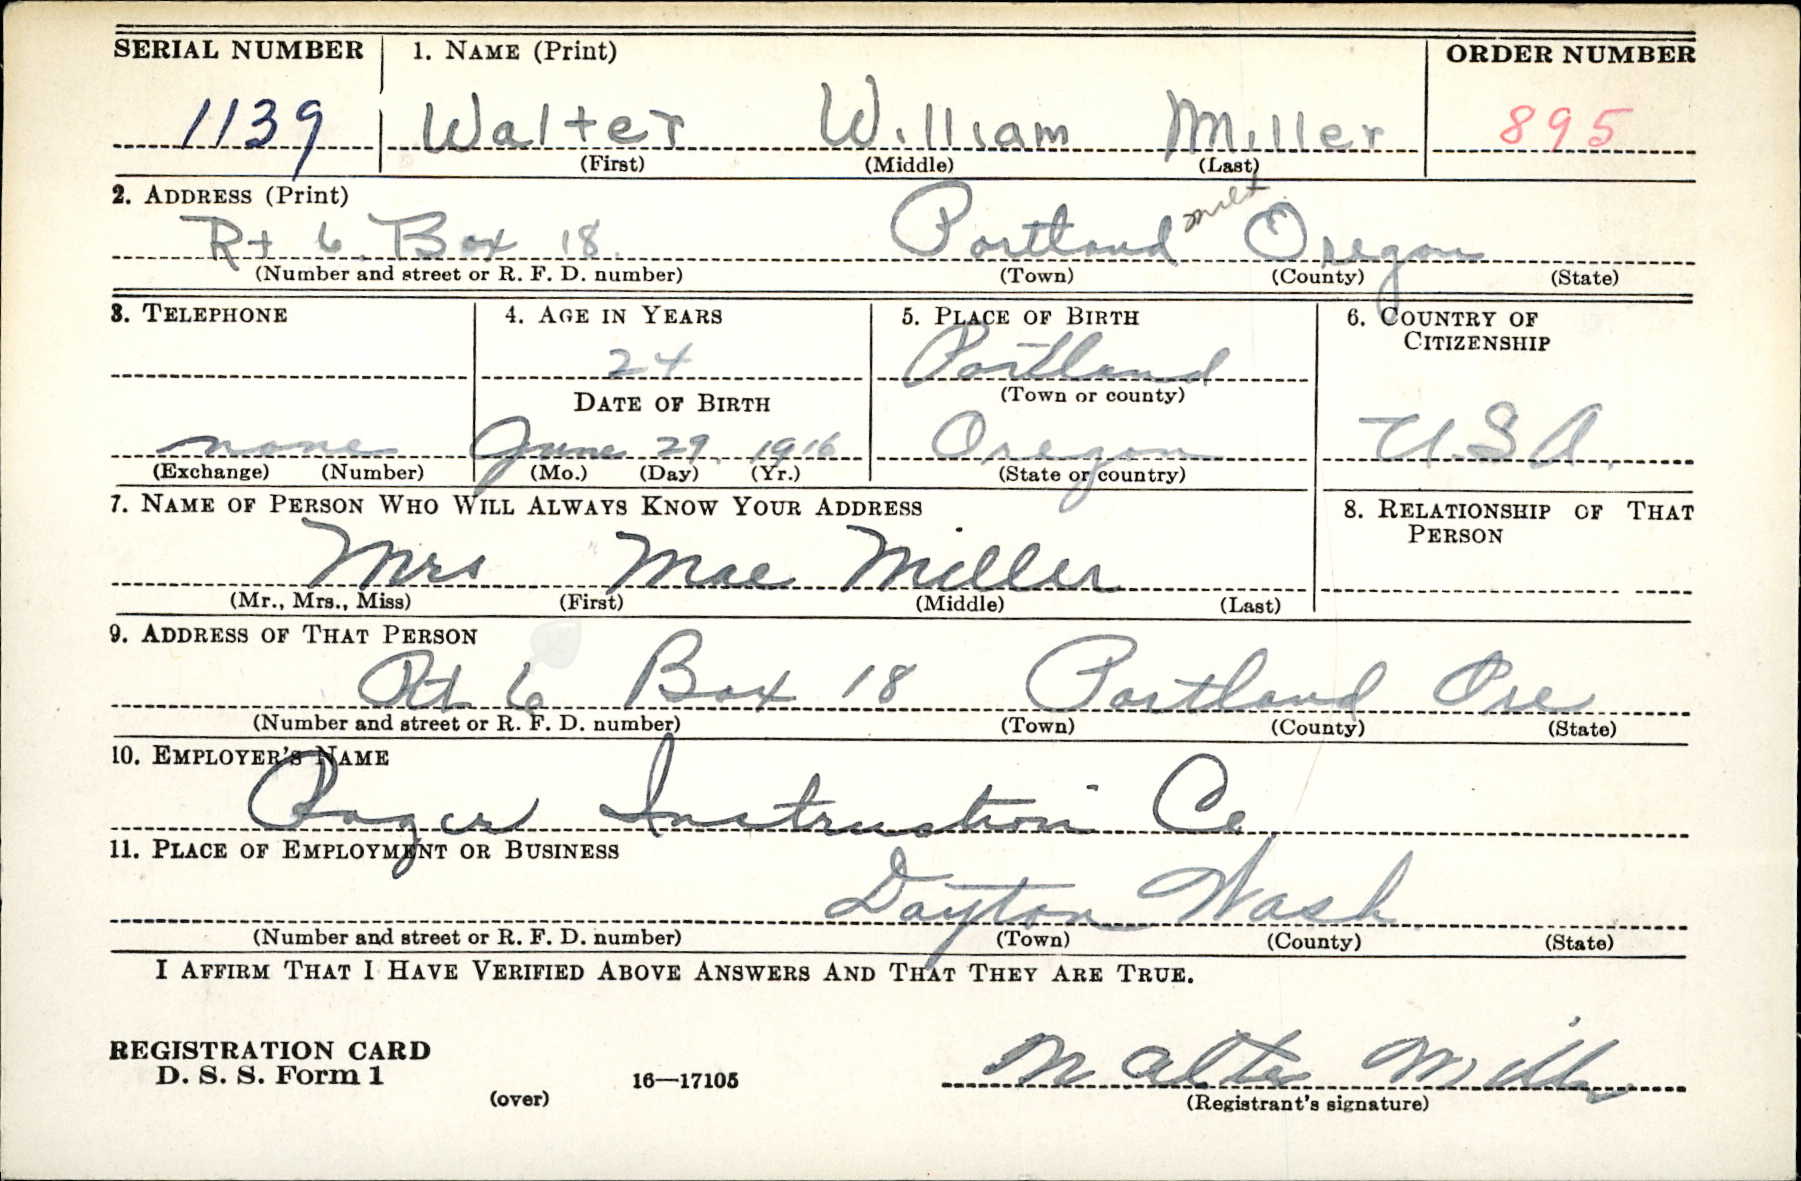 SERIAL NUMBER 1. NAME (Print) ORDER NUMBER
1139 Walter William Miller 895
(First) (Middle) (Last)
2. ADDRESS (Print)
Rt 6. Box 18. Portland mult Oregon
(Number and street or R. F. D. number) (Town) (County) (State)
3. TELEPHONE 4. AGE IN YEARS 5. PLACE OF BIRTH 6. COUNTRY OF CITIZENSHIP
24 Portland
DATE OF BIRTH (Town or county)
none June 29. 1916 Oregon U.S.A.
(Exchange) (Number) (Mo.) (Day) (Yr.) (State or country)
7. NAME OF PERSON WHO WILL ALWAYS KNOW YOUR ADDRESS 8. RELATIONSHIP OF THAT PERSON
Mrs Mae Miller
(Mr., Mrs., Miss) (First) (Middle) (Last)
9. ADDRESS OF THAT PERSON
Rt 6 Box 18 Portland Ore
(Number and street or R. F. D. number) (Town) (County) (State)
10. EMPLOYER'S NAME
Co.
11. PLACE OF EMPLOYMENT OR BUSINESS
Dayton Wash.
(Number and street or R. F. D. number) (Town) (County) (State)
I AFFIRM THAT I HAVE VERIFIED ABOVE ANSWERS AND THAT THEY ARE TRUE.
REGISTRATION CARD
D. S. S. Form 1 16—17105 Walter Miller
(over) (Registrant's signature)